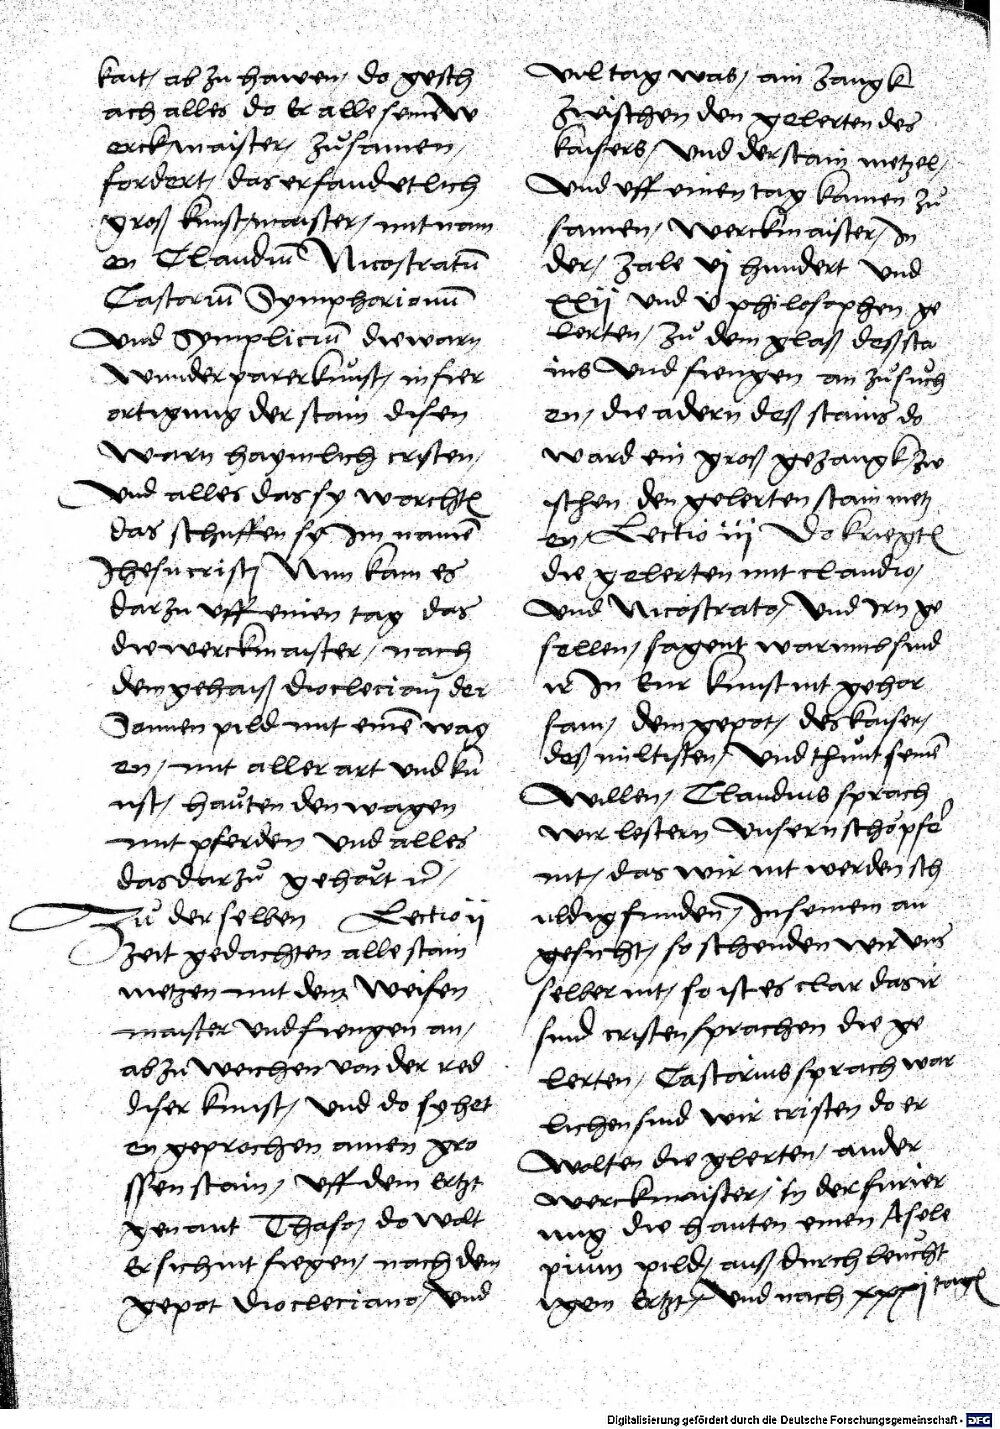 kait, ab zu hawen, do gesch
ach alles do Er alle seinē w
erckmaister, zůsamen,
fordert, das er fand etlich
groß kunst, maister, mit nam
en Claudiū Nicostratū
Castoriū Symphorianū
Und Simpliciū die warn
wunderparer kunst, in fier
ortigung der stain disen
warn haymlich cristen,
Und alles das sy worchtē
das schuffen sy Im namē
Jhesu cristi Nun kam es
darzu uff einen tag das
die werckmaister, nach
dem gehaiß diocleciani der
Sonnen pild mit einē wag
en, mit aller art und kū
nst, hauten den wagen
mit pferden und alles
das darzů gehört
Zů der selben Lectio ij
zeit gedachten alle stain
metzen mit dem weisen
maister und fiengen an,
ab zu weichen von der red
diser kunst, und do sy het
en geprochen ainen gro
ssen stain, uff dem ertzt
genant Thaso, do wolt
er sich nit fiegen, nach dem
gepot diocleciano, und
vil tag was, ain zangk
zwischen den gelerten des
kaisers, Und der stain metzel,
Und uff einen tag kamen zů
samen, werckmaister, In
der, zale vj hundert und
xxij und v philosophen ge
lerten, zů dem glaß deß sta
ins Und fiengen an zů such
en, die adern deß stains do
ward ein groß gezangk zw
ischen den gelerten stain metz
en, Lectio iij Do kriegtē
die gelerten mit claudio,
Und Nicostrato, Und irn ge
sellen, sagent warumb sind
ir In eur kunst nit gehor
sam, dem gepot, des kaiser,
deß miltisten, Und thunt seinē
willen, Claudius sprach
wir lestern Unsern schöpfer
nit, das wir nit werden sch
uldig funden, In seinem an
gesicht, so schenden wir uns
selber nit, so ist es clar das ir
sind cristen sprachen die ge
lerten, Castorius sprach war
lichen sind wir cristen do er
wolten die glerten, ander
werckmaister, in der furier
ung die hauten einen Ascle
pium pild, auß durchleucht
igem ertzt, Und nach xxxj tagē
Digitalisierung gefördert durch die Deutsche Forschungsgemeinschaft - DFG